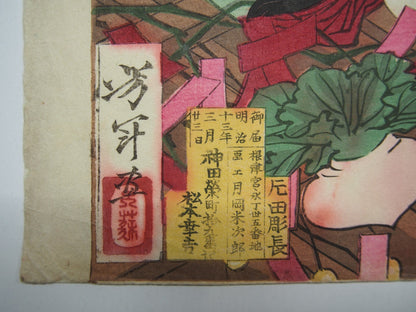 芳年画
御届
明治
十三年
三月
廿三日
根津宮永丁廿五番地
画工月岡米次郎
神田榮町
松本幸吉
片田彫長